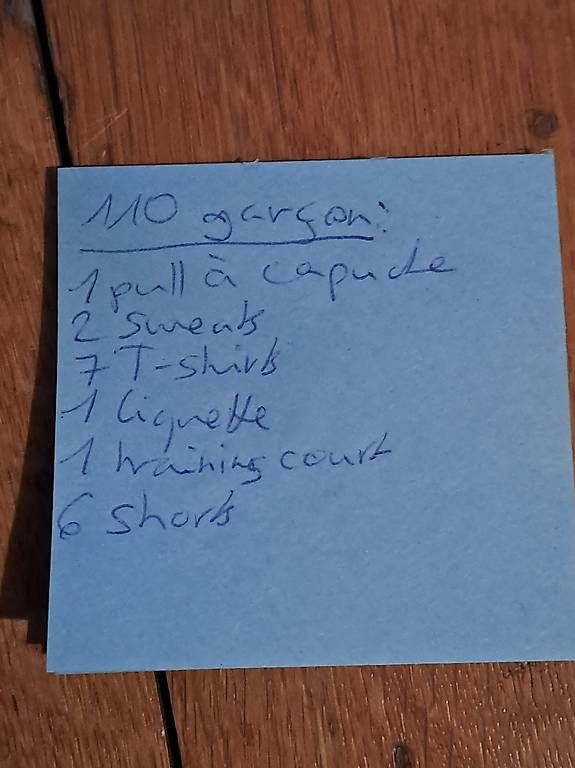 110 garçon:
1 pull à capuche
2 sweats
7 T-shirts
1 liquette
1 training court
6 shorts